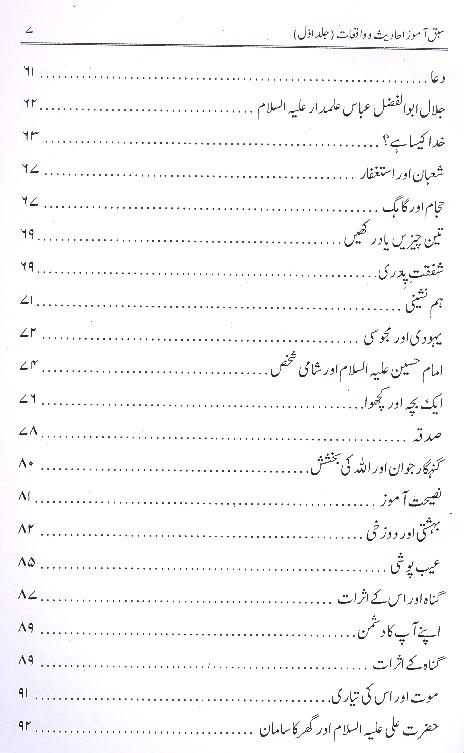 سبق آموز احادیث و واقعات (جلد اوّل) ۷
دعا ۶۱
جلال ابوالفضل عباس علمدار علیہ السلام ۶۲
خدا کیسا ہے؟ ۶۳
شعبان اور استغفار ۶۷
حجام اور گاہک ۶۷
تین چیزیں یاد رکھیں ۶۹
شفقتِ پدری ۶۹
ہم نشینی ۷۱
یہودی اور مجوسی ۷۲
امام حسین علیہ السلام اور شامی شخص ۷۴
ایک بچہ اور کچھوا ۷۶
صدقہ ۷۸
گنہگار جوان اور اللہ کی بخشش ۸۰
نصیحت آموز ۸۱
بہشتی اور دوزخی ۸۲
عیب پوشی ۸۵
گناہ اور اس کے اثرات ۸۷
اپنے آپ کا دشمن ۸۹
گناہ کے اثرات ۸۹
موت اور اس کی تیاری ۹۱
حضرت علی علیہ السلام اور گھر کا سامان ۹۲